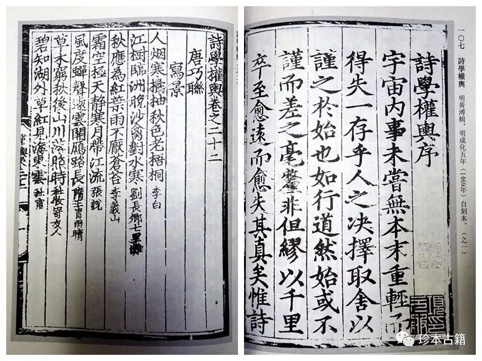 一〇七 詩學權輿 明黃溥輯,明成化五年(一四六九年)自刻本。(之一)
詩學權輿序
宇宙內事未嘗無本末重輕而
得失一存乎人之決擇取舍以
謹之於始也如行道然始或不
謹而差之毫釐非但繆以千里
卒至愈遠而愈失其真矣惟詩
詩學權輿卷之二十二
唐巧聯
寫景
人烟寒橘柚秋色老梧桐 李白
江樹臨洲晚沙禽對水寒 劉長卿七里灘
秋應為紅葉雨不厭蒼苔 李義山
霜空極天靜寒月帶江流 張說
風度蟬聲遠雲開鴈路長
草木窮秋後山川落照時 杜牧寄友人
碧知湖外草紅見海東雲 杜甫
珍本古籍